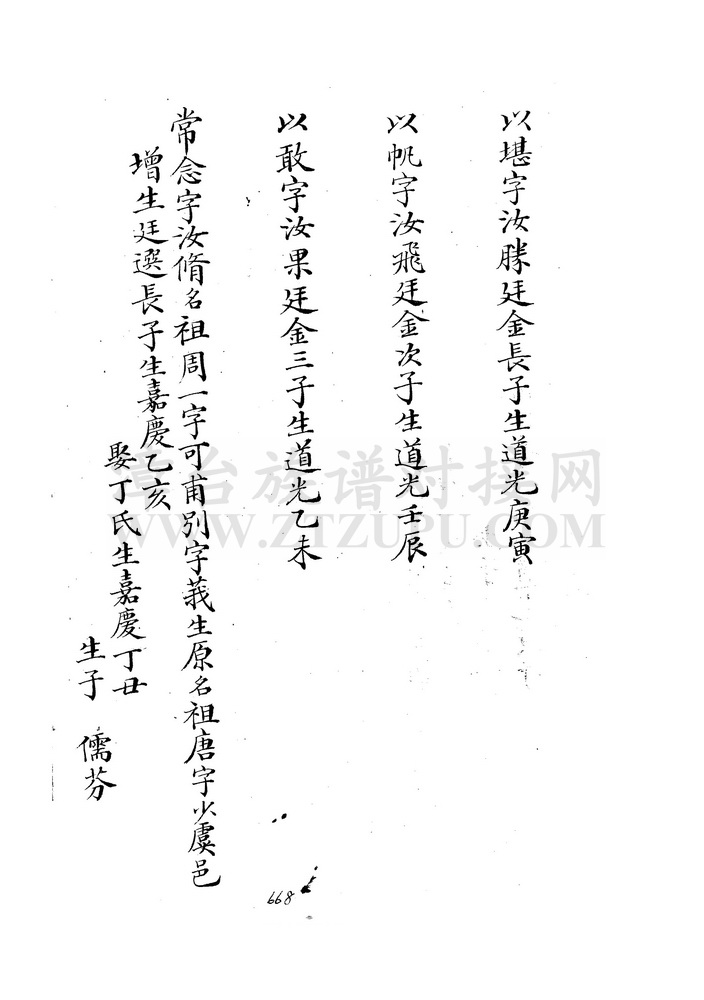 以堪字汝勝廷金長子生道光庚寅
以帆字汝飛廷金次子生道光壬辰
以敢字汝果廷金三子生道光乙未
常念字汝脩名祖周一字可甫别字莪生原名祖唐字少虞邑
增生廷選長子生嘉慶乙亥
娶丁氏生嘉慶丁丑
生子 儒芬
668
漳台族谱对接网
WWW.ZTZUPU.COM